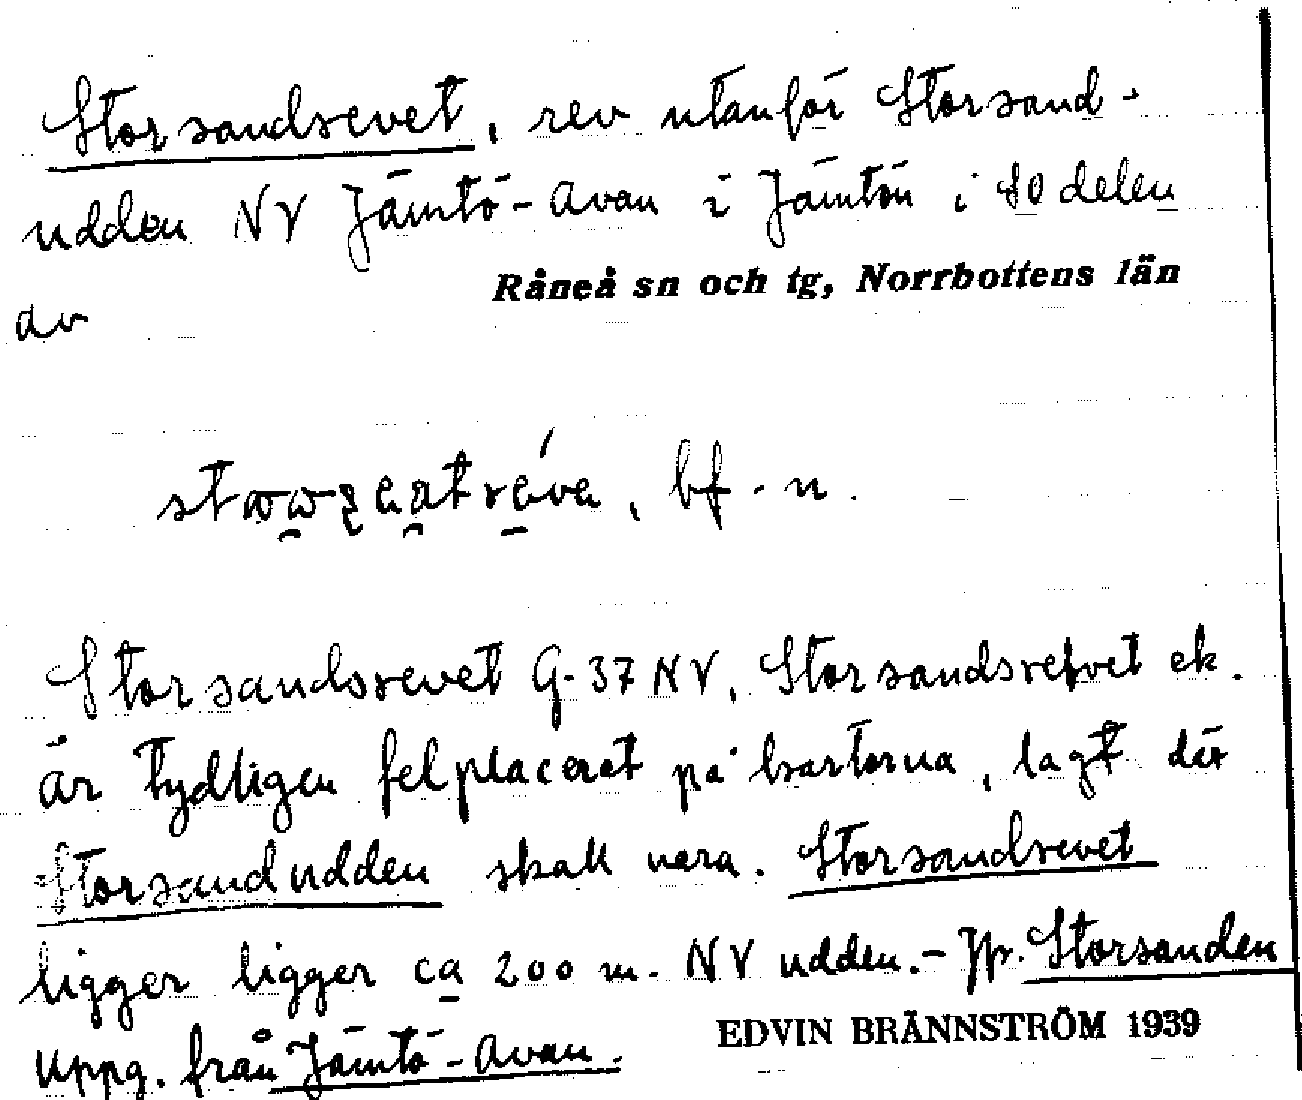 Storsandsrevet, rev utanför Storsand-
udden NV Jämtö-Avan i Jämtön i SO delen
Råneå sn och tg, Norrbottens län
av
bf. n.
Storsandsrevet G-37 NV, Storsandsrefvet ek.
är tydligen felplacerat på kartorna, lagt där
Storsandudden skall vara. Storsandsrevet
ligger ligger ca 200 m. NV udden.- Jfr. Storsanden
EDVIN BRÄNNSTRÖM 1939
Uppg. från Jämtö-Avan.